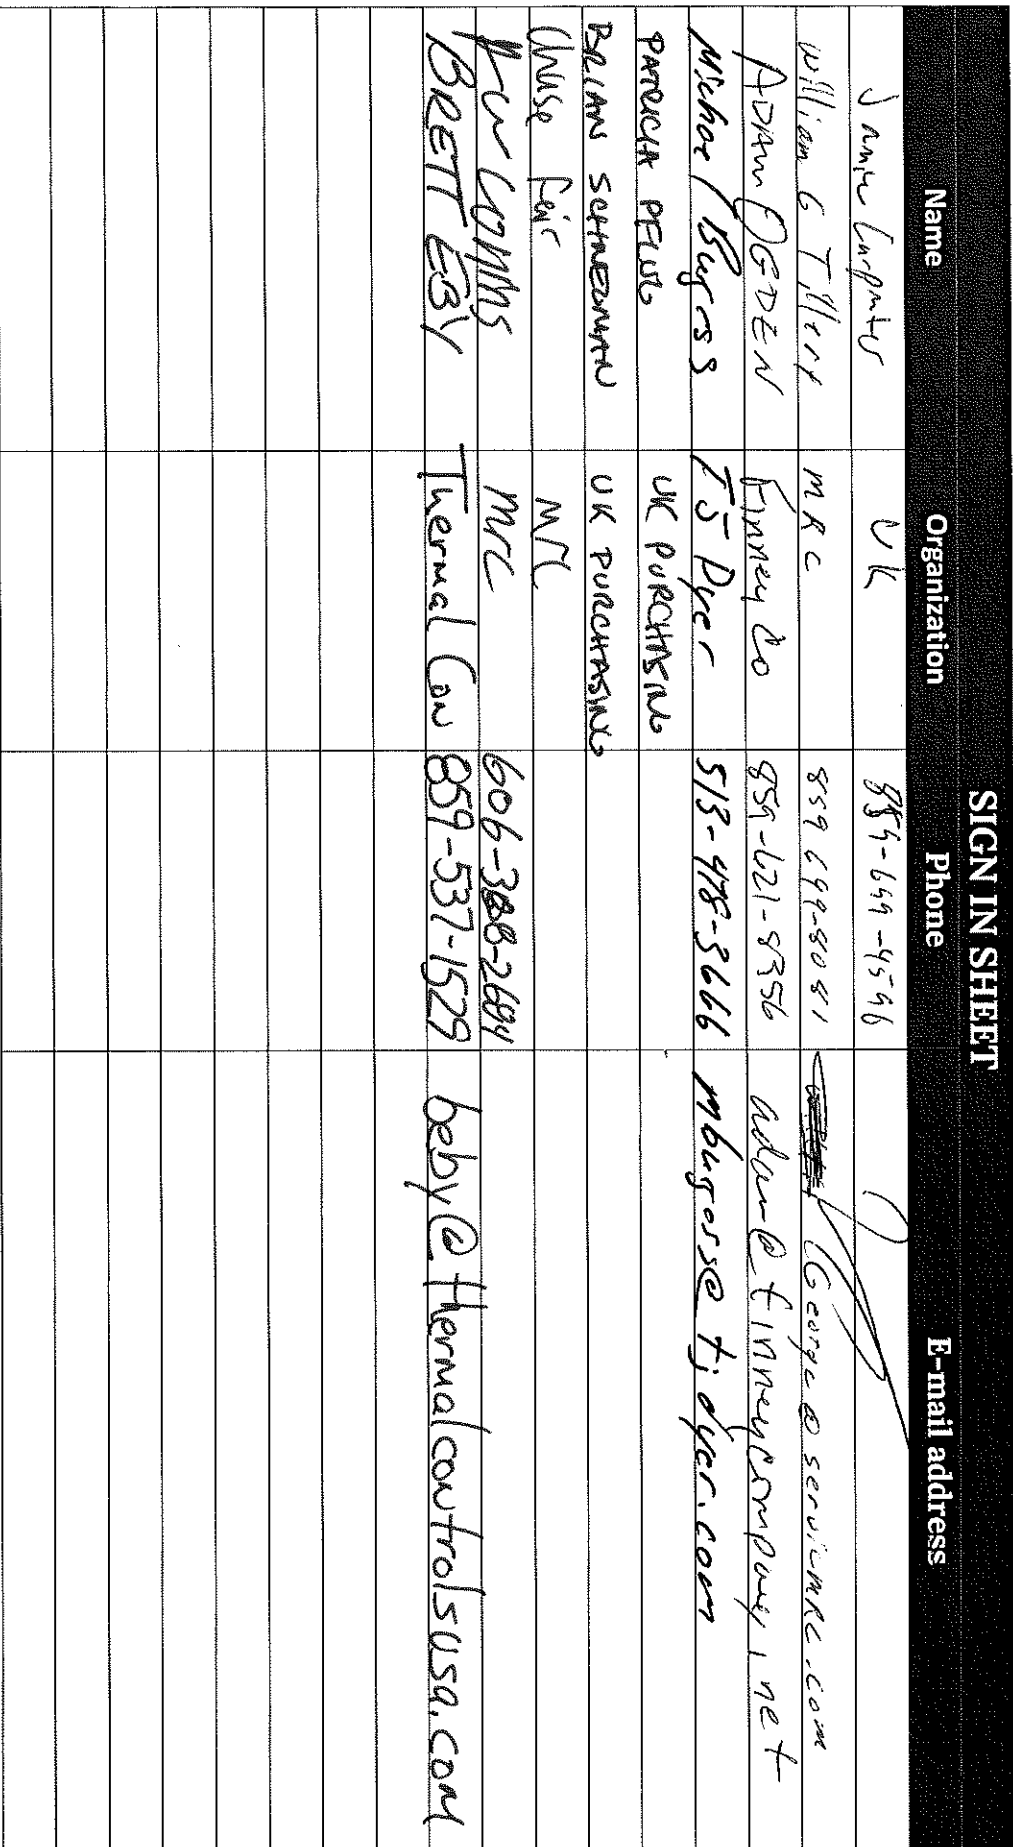 SIGN IN SHEET
Name Organization Phone E-mail address
UK 859-699-4596
William G Tillery MRC 859 699-8081
ADAM OGDEN Finney Co 859-621-8356 adam@finneycompany.net
Michael Burgess TJ Dyer 513-478-3666 mburgess@tjdyer.com
PATRICIA UK PURCHASING
BRIAN SCHNEZMAN UK PURCHASING
Fair MRC
COMBS MRC 606-388-2694
BRETT EBY Thermal Con 859-537-1529 beby@thermalcontrolsusa.com